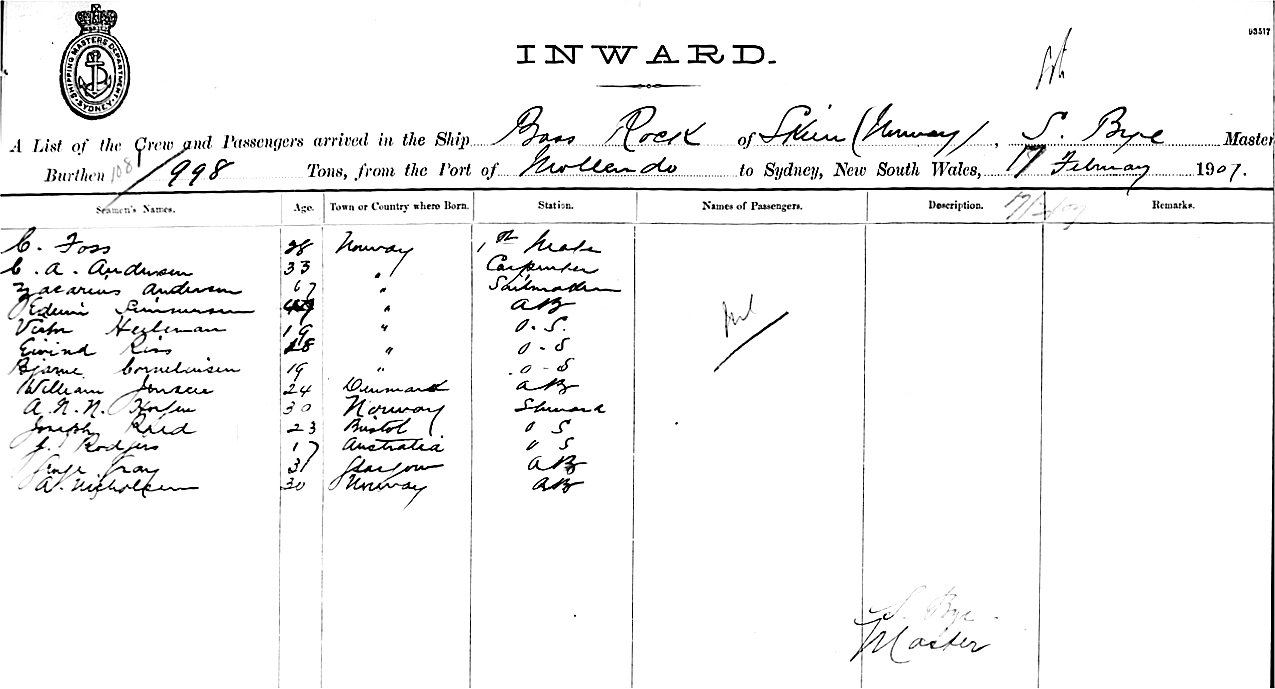 93517
SHIPPING MASTERS DEPARTMENT SYDNEY
INWARD.
A List of the Crew and Passengers arrived in the Ship Bass Rock of Skien (Norway), S. Bye Master
Burthen 1081/998 Tons, from the Port of Mollendo to Sydney, New South Wales, 17 February 1907.
Seamen's Names. Age. Town or Country where Born. Station. Names of Passengers. Description. 17/2/07 Remarks.
C. Foss 28 Norway 1th Mate
C. A. Andersen 33 " Carpenter
Zacarius Anderson 67 " Sailmaker
Edwin Simmersen " AB
Victor Heileman 19 " O.S.
Eivind Riss 18 " O-S
Bjarne Corneliusen 19 " O-S
William Jensen 24 Denmark AB
A. N. N. 30 Norway Steward
Joseph Raid 23 Bristol O S
C. Rodgers 17 Australia O S
George Gray 31 Glasgow AB
A. Nicholsen 30 Norway AB
Nil
S. Bye
Master